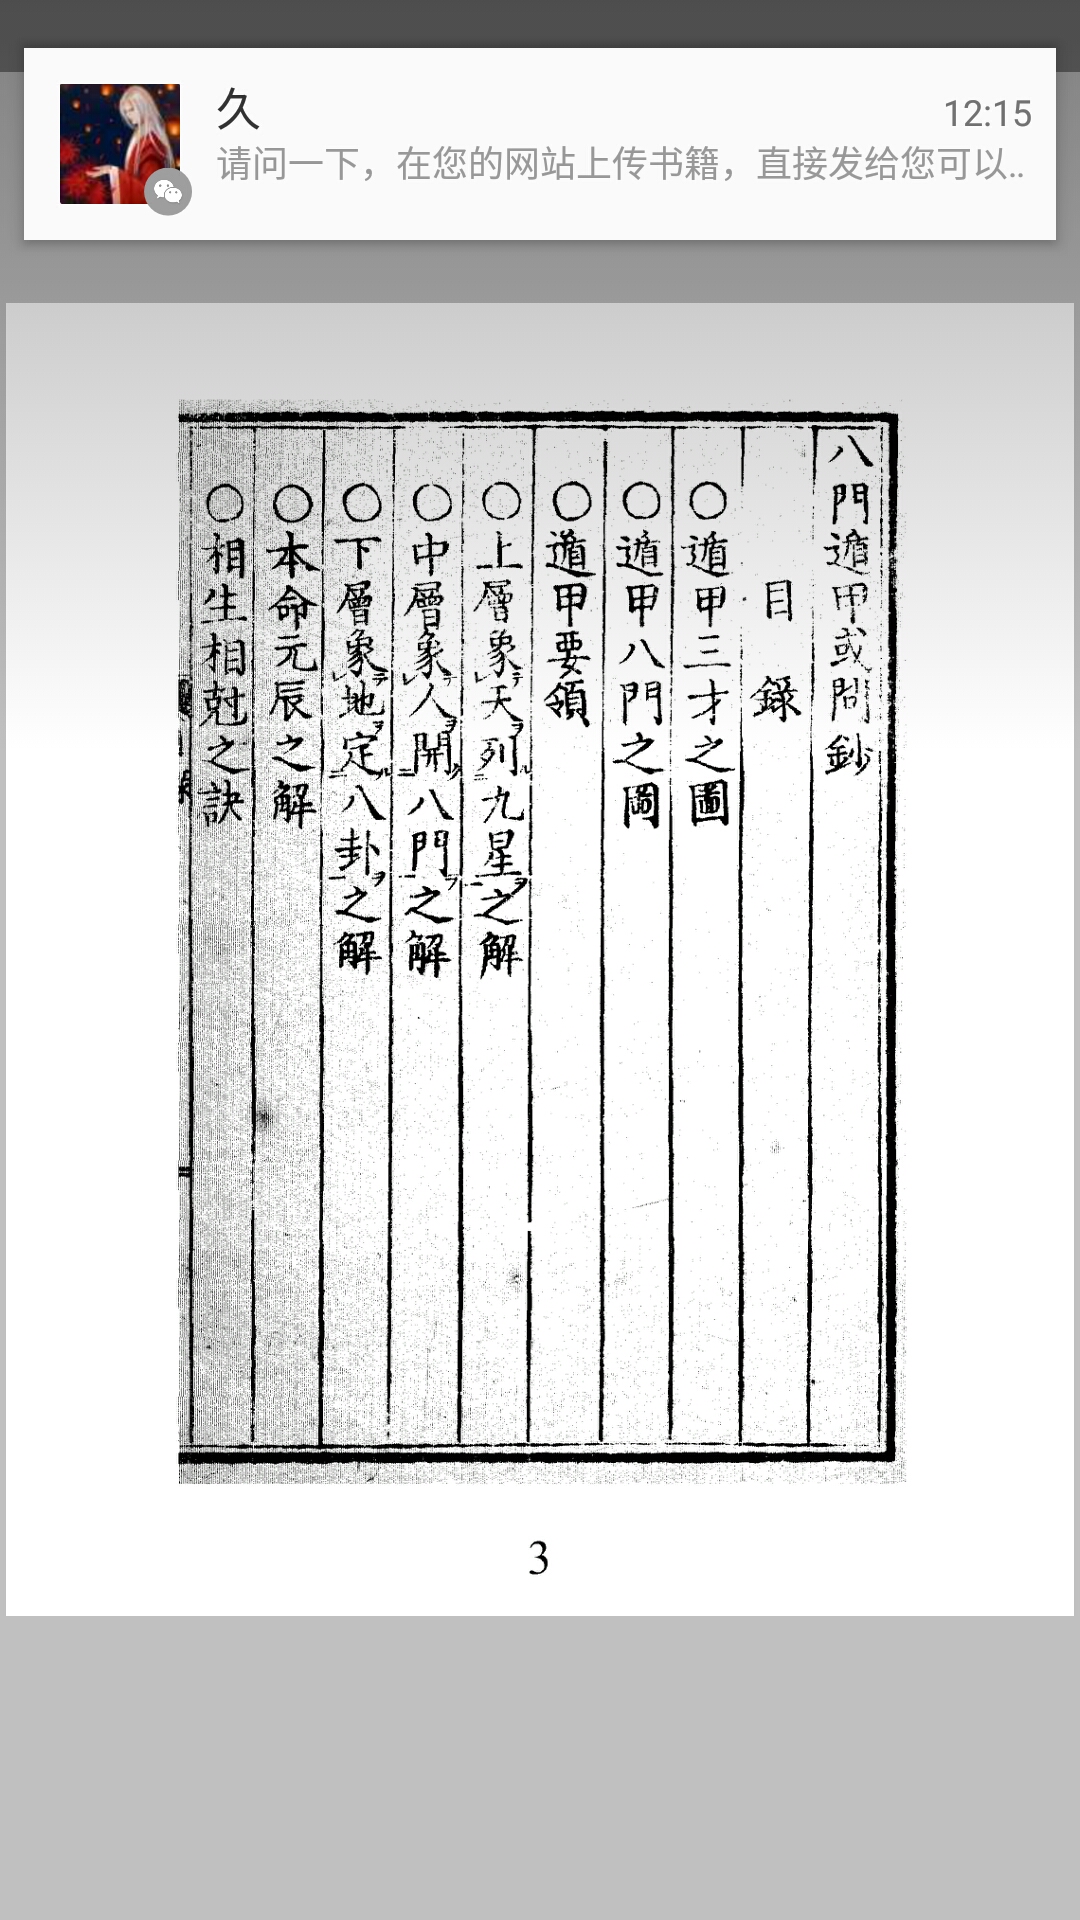 久
12:15
请问一下，在您的网站上传书籍，直接发给您可以..
八門遁甲或問鈔
目錄
○遁甲三才之圖
○遁甲八門之圖
○遁甲要領
○上層象テ天ヲ列ル九星ヲ之解
○中層象テ人ヲ開ク八門ヲ之解
○下層象テ地ヲ定ル八卦ヲ之解
○本命元辰之解
○相生相尅之訣
3